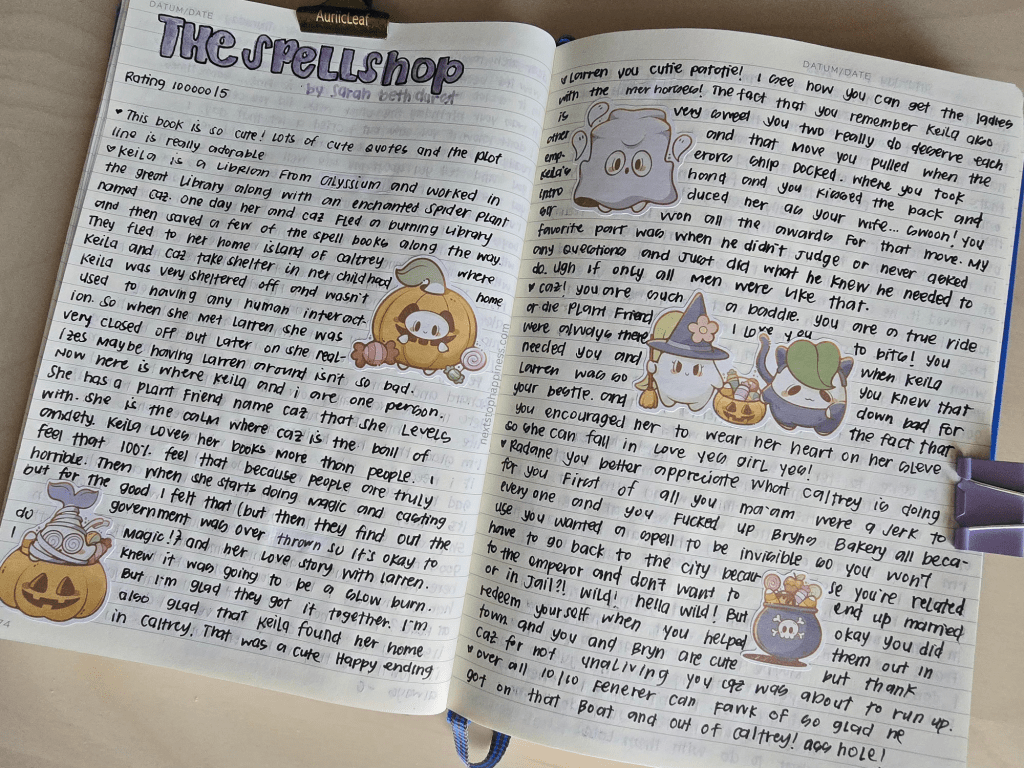 AuricLeaf
DATUM/DATE
The Spellshop
by Sarah Beth Durst
Rating 1000015
♥ This book is so cute! Lots of cute quotes and the plot
line is really adorable
♥ Keila is a Librian From alyssium and worked in
the great Library along with an enchanted spider plant
named caz. one day her and caz fled a burning library
and then saved a few of the spell books along the way.
They fled to her home island of caltrey where
Keila and Caz take shelter in her childhood home
Keila was very sheltered off and wasn't
used to having any human interact-
ion. So when she met Larren she was
very closed off but later on she real-
izes maybe having Larren around isn't so bad.
Now here is where Keila and i are one person.
She has a plant Friend name caz that she levels
with. She is the calm where caz is the ball of
anxiety. Keila loves her books more than people.
feel that 100% feel that because people are truly
horrible. Then when she starts doing magic and casting
but for the good I felt that (but then they find out the
government was over thrown so it's okay to do
magic!? and her love story with Larren. I
knew it was going to be a slow burn.
But I'm glad they got it together. I'm
also glad that Keila found her home
in caltrey. That was a cute Happy ending
nextstophappiness.com
DATUM/DATE
♥ Larren you cutie patotie! I see how you can get the ladies
with the mer horses! The fact that you remember Keila also
is very sweet you two really do deserve each
other and that move you pulled when the
emp- erors ship docked. where you took
Keila's hand and you kissed the back and
intro duced her as your wife... swoon! you
won all the awards for that move. My
favorite part was when he didn't judge or never asked
any questions and just did what he knew he needed to
do. ugh if only all men were like that.
♥ caz! you are such a baddie. you are a true ride
or die Plant Friend I love you to bits! you
were always there when Keila
needed you and you knew that
Larren was so down bad for
your bestie. and the fact that
you encouraged her to wear her heart on her sleve
so she can fall in love yes girl yes!
♥ Radane you better appreciate what caltrey is doing
for you First of all you ma'am were a jerk to
every one and you Fucked up Bryns Bakery all beca-
use you wanted a spell to be invisible so you won't
have to go back to the city becau- se you're related
to the emperor and don't want to end up married
or in Jail?! wild! hella wild! But okay you did
redeem yourself when you helped them out in
town and you and Bryn are cute but thank
caz for not unaliving you caz was about to run up.
♥ over all 10/10 Fenerer can fawk of so glad he
got on that Boat and out of caltrey! ass hole!